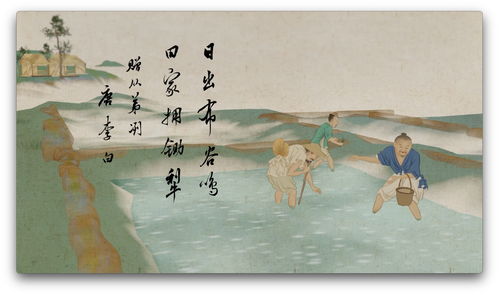 日出布谷鸣
田家拥锄犁
赠从弟冽
唐 李白